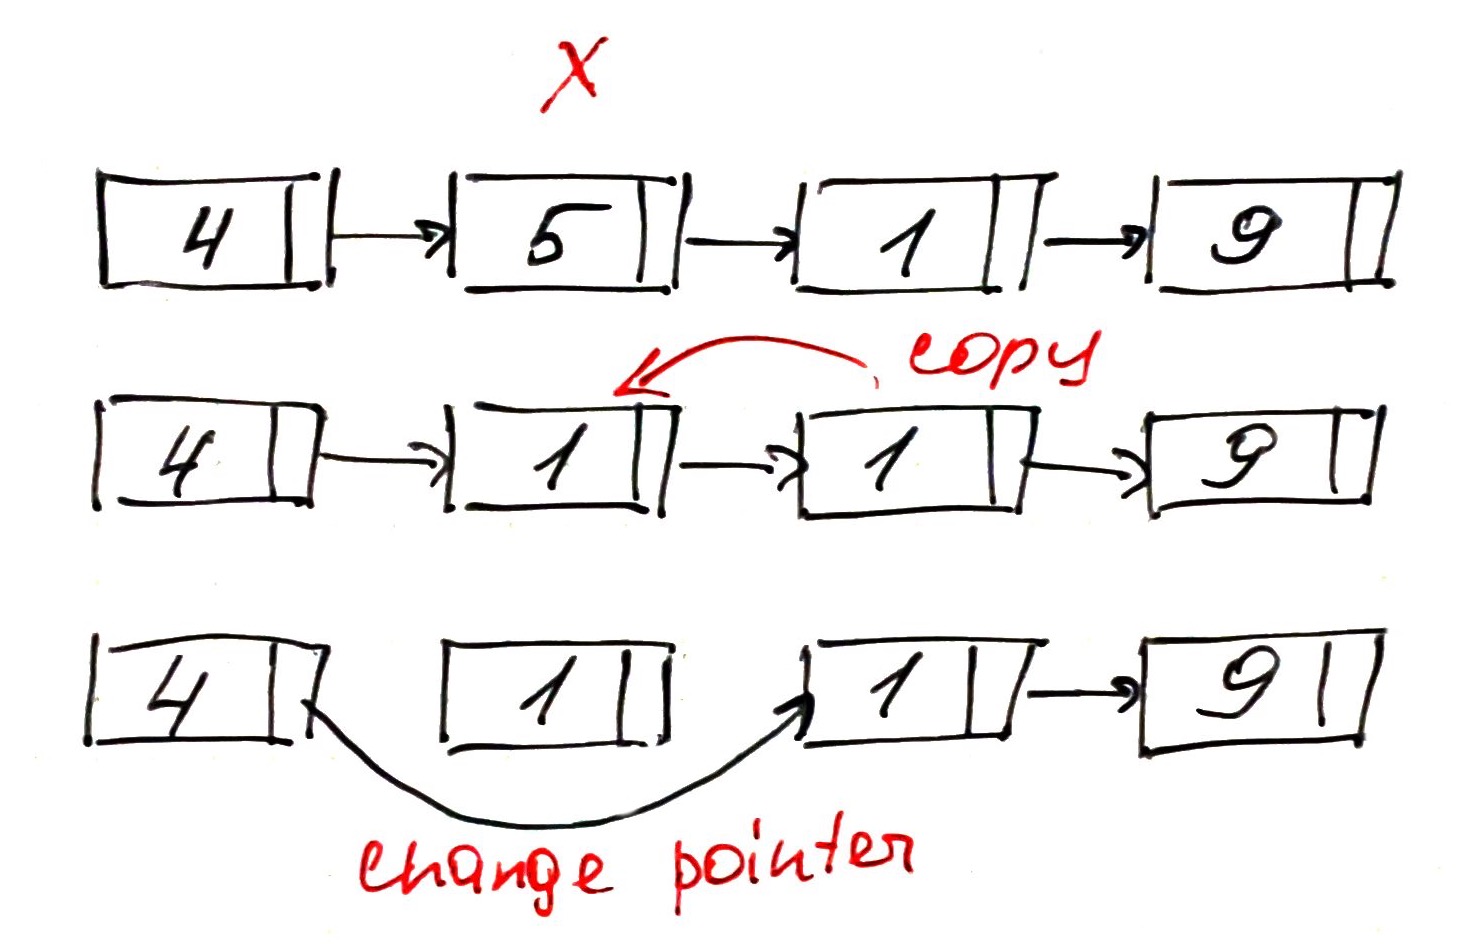 X
4 5 1 9
copy
4 1 1 9
4 1 1 9
change pointer